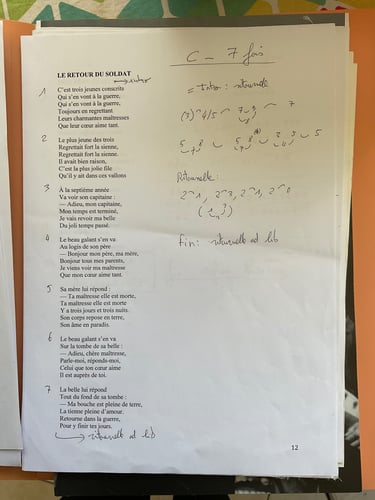 C - 7 fois
LE RETOUR DU SOLDAT
→ intro
= Intro : ritournelle
1
C'est trois jeunes conscrits
Qui s'en vont à la guerre,
Qui s'en vont à la guerre,
Toujours en regrettant
Leurs charmantes maîtresses
Que leur cœur aime tant.
2
Le plus jeune des trois
Regrettait fort la sienne,
Regrettait fort la sienne.
Il avait bien raison,
C'est la plus jolie fille
Qu'il y ait dans ces vallons
Ritournelle :
3
À la septième année
Va voir son capitaine :
— Adieu, mon capitaine,
Mon temps est terminé,
Je vais revoir ma belle
Du joli temps passé.
fin : ritournelle ad lib
4
Le beau galant s'en va
Au logis de son père :
— Bonjour mon père, ma mère,
Bonjour tous mes parents,
Je viens voir ma maîtresse
Que mon cœur aime tant.
5
Sa mère lui répond :
— Ta maîtresse elle est morte,
Ta maîtresse elle est morte
Y a trois jours et trois nuits.
Son corps repose en terre,
Son âme en paradis.
6
Le beau galant s'en va
Sur la tombe de sa belle :
— Adieu, chère maîtresse,
Parle-moi, réponds-moi,
Celui que ton cœur aime
Il est auprès de toi.
7
La belle lui répond
Tout du fond de sa tombe :
— Ma bouche est pleine de terre,
La tienne pleine d'amour.
Retourne dans la guerre,
Pour y finir tes jours.
→ ritournelle ad lib
12